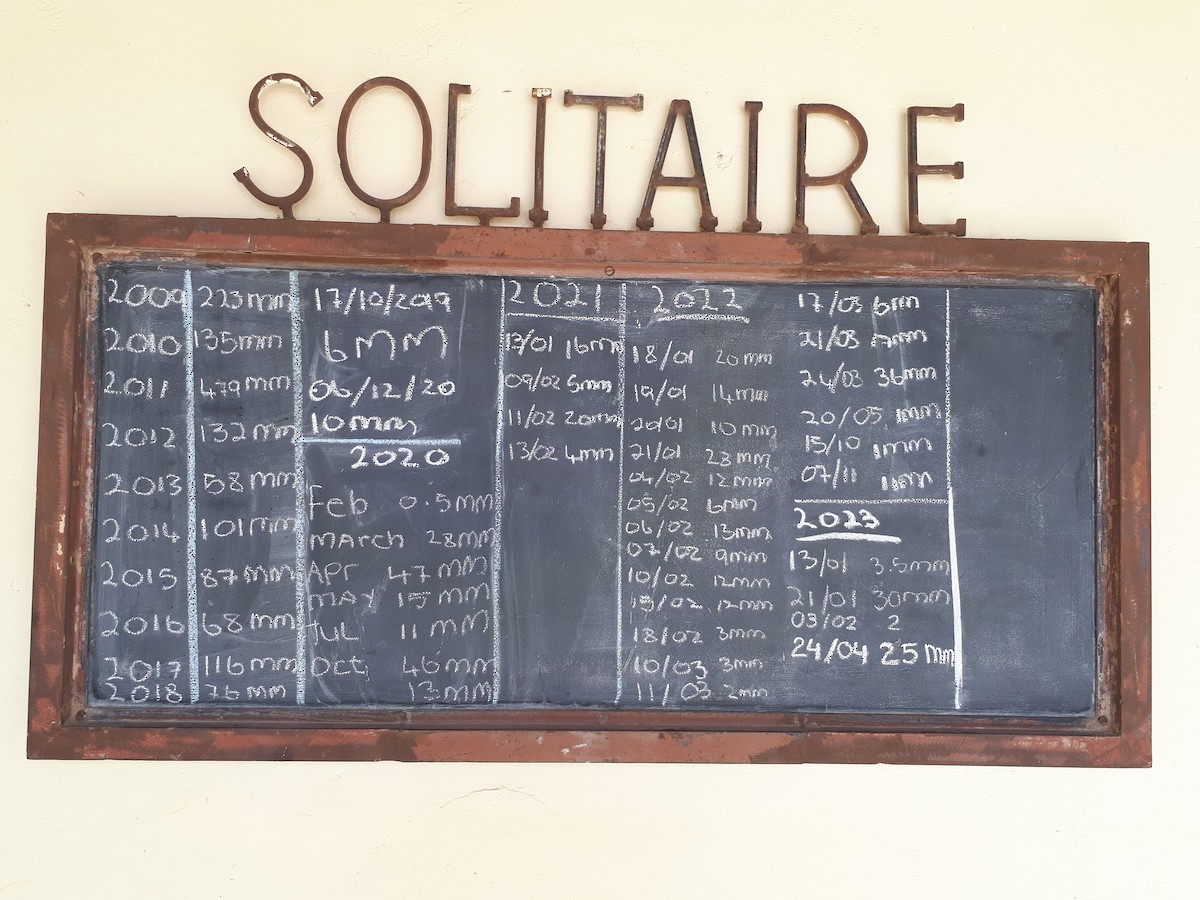 SOLITAIRE
2009 223mm
2010 135mm
2011 479mm
2012 132mm
2013 58mm
2014 101mm
2015 87mm
2016 68mm
2017 116mm
2018 76mm
17/10/2019
6mm
06/12/20
10mm
2020
Feb 0.5mm
March 28mm
Apr 47mm
May 15mm
Jul 11mm
Oct 46mm
13mm
2021
16mm
09/02 5mm
11/02 20mm
13/02 4mm
2022
18/01 20mm
19/01 14mm
20/01 10mm
21/01 23mm
04/02 12mm
05/02 6mm
06/02 13mm
07/02 9mm
10/02 12mm
15/02 12mm
18/02 3mm
10/03 3mm
11/03 2mm
17/03 6mm
21/03
24/03 36mm
20/05 1mm
15/10 1mm
07/11 1mm
2023
13/01 3.5mm
21/01 30mm
03/02 2
24/04 25mm